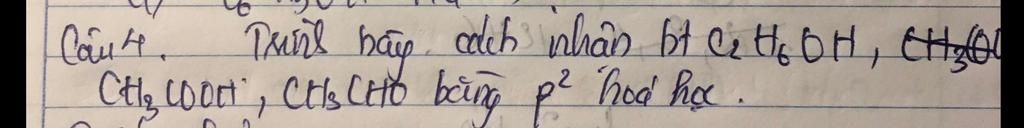 Câu 4. Trình bày cách nhận bt C₂H₆OH, C̶H̶₃̶C̶O̶
CH₃COOH, CH₃CHO bằng p² hoá học.